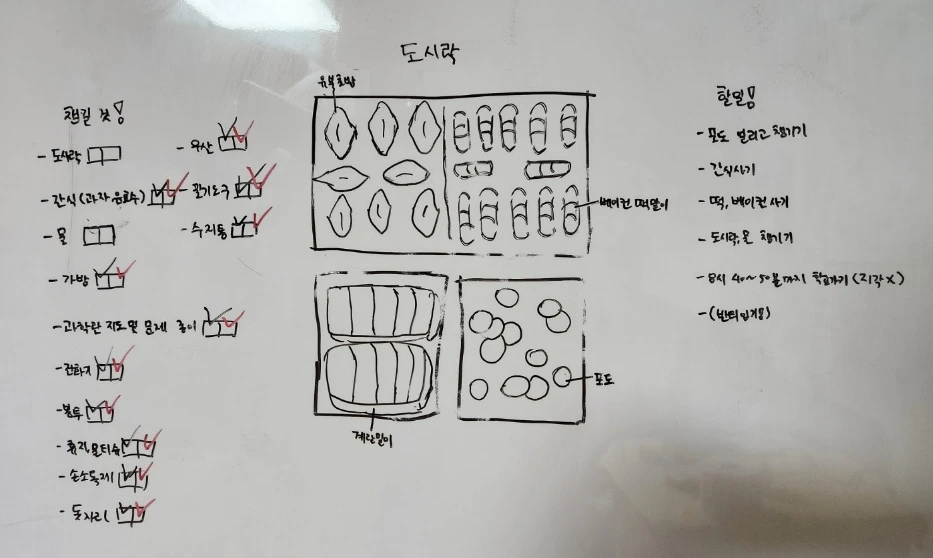 도시락
챙길 것!
- 도시락
- 간식(과자 음료수)
- 물
- 가방
- 과학관 지도 및 문제 종이
- 전화기
- 봉투
- 휴지, 물티슈
- 손소독제
- 돗자리
- 우산
- 필기도구
- 수저통
유부초밥
베이컨 떡말이
계란말이
포도
할일!
- 포도 얼리고 챙기기
- 간식사기
- 떡, 베이컨 사기
- 도시락, 물 챙기기
- 8시 40~50분까지 학교가기 (지각 X)
- (반티입기용)